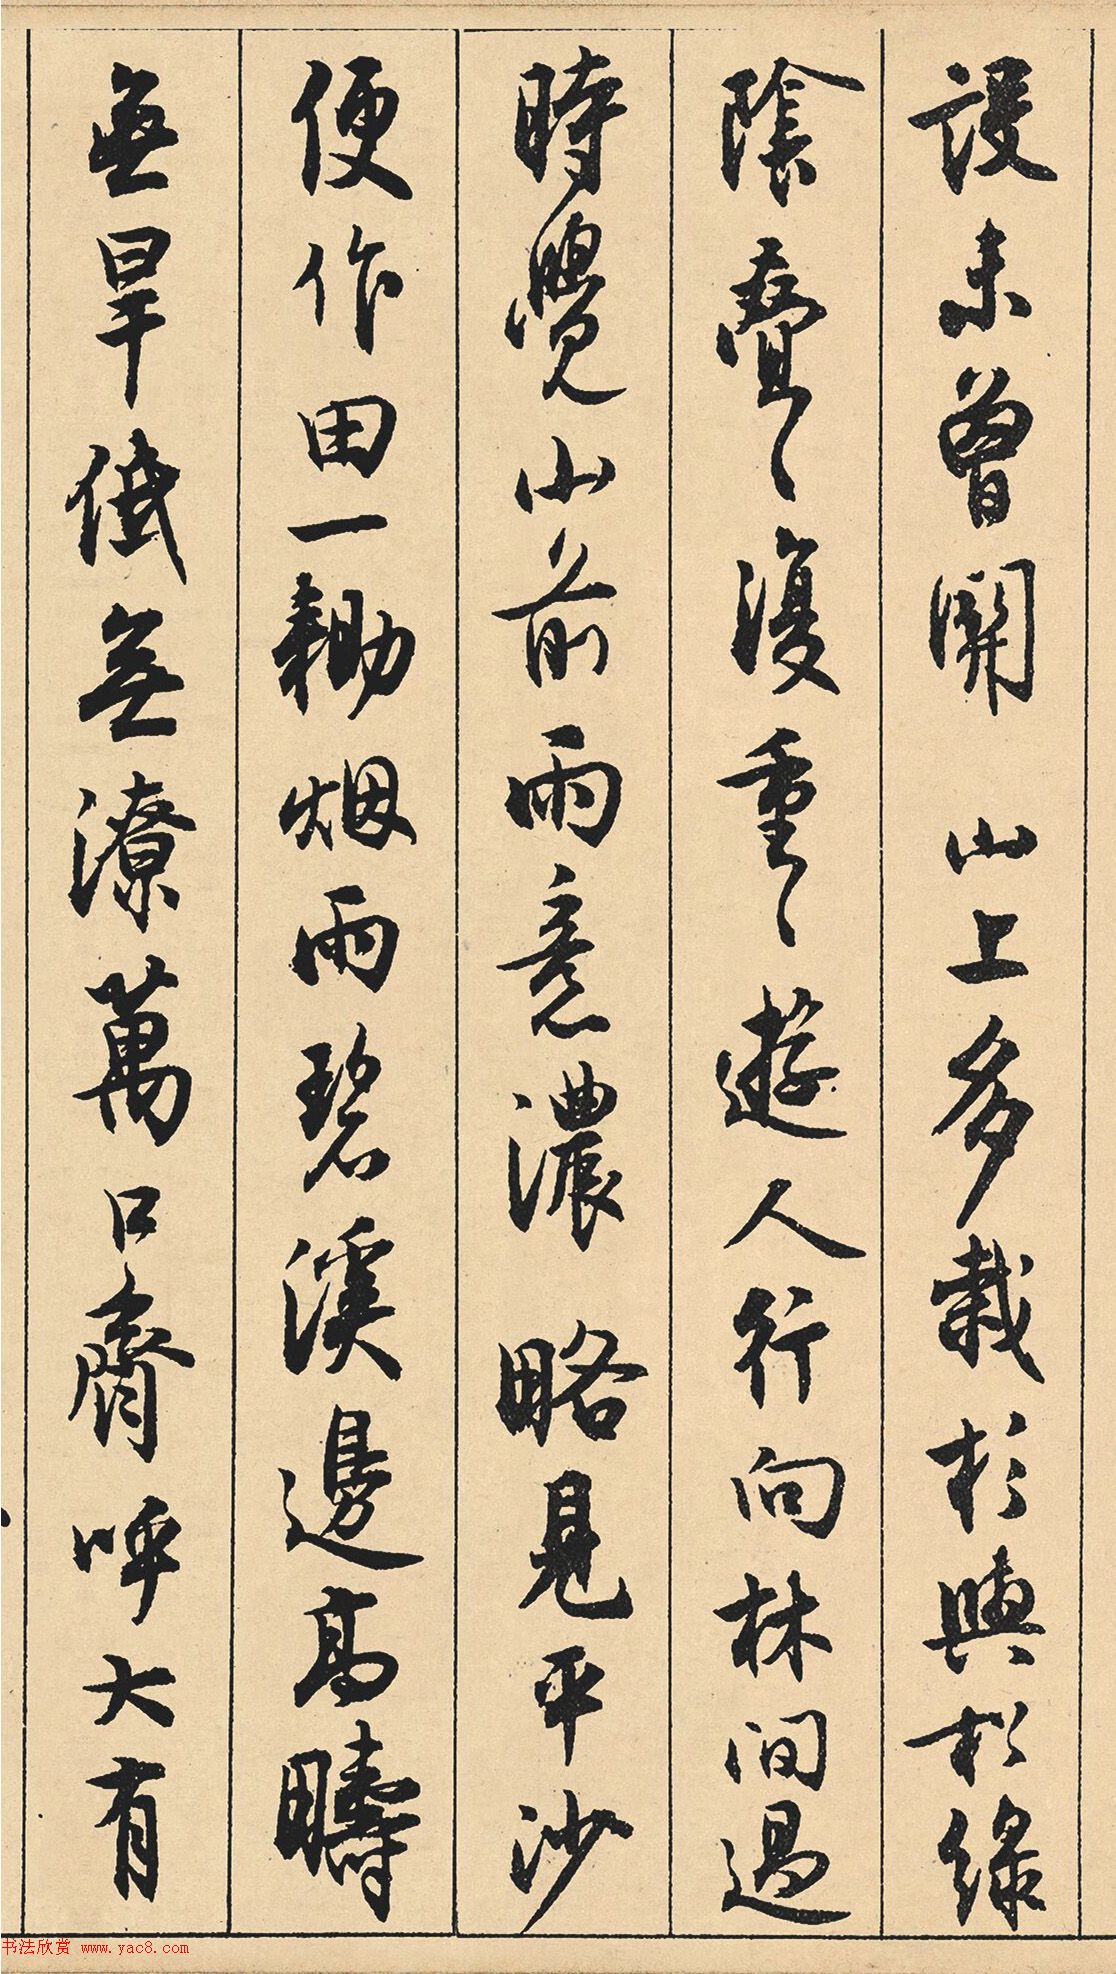 設未曾開 山上多栽杉與松綠
陰疊々復重々遊人行向林間過
時覺山前雨意濃 略見平沙
便作田一耡烟雨碧溪邊高疇
無旱低無潦萬口齊呼大有
书法欣赏 www.yac8.com